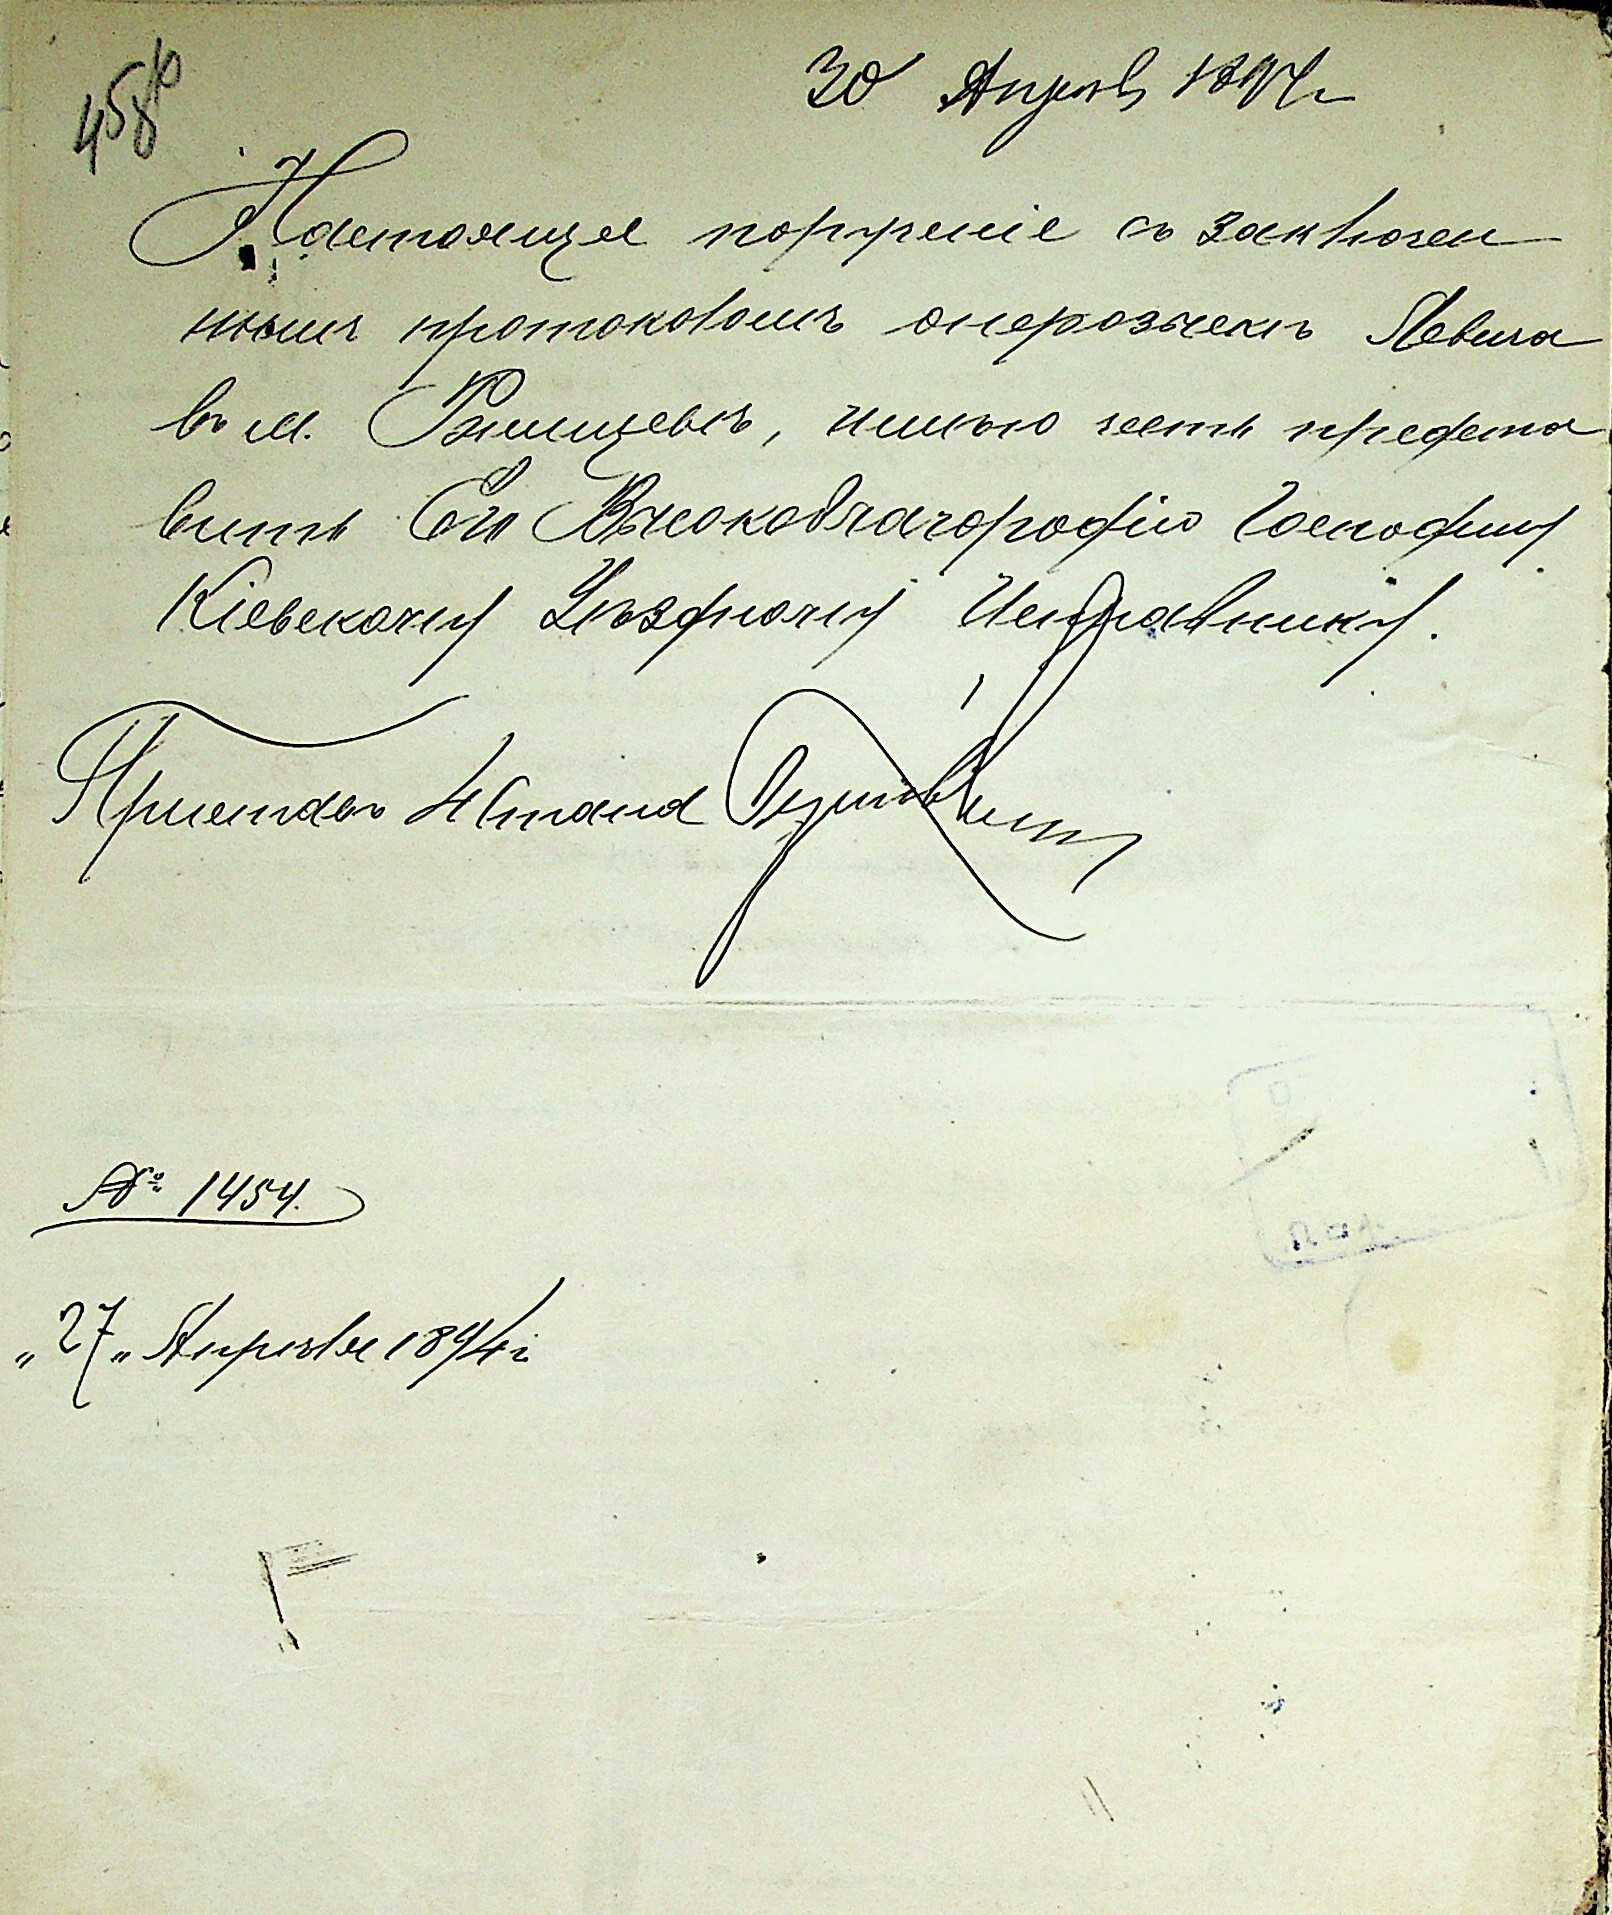 458
30 Апреля 1894 г
Настоящее порученіе съ заключен
нымъ протоколомъ о нерозыскѣ Левина
въ м. Ржищевѣ, имѣю честь предста
вить Его Высокоблагородію Господину
Кіевскому Уѣздному Исправнику.
Приставъ 4 Стана
№ 1454.
„27„ Апрѣля 1894 г